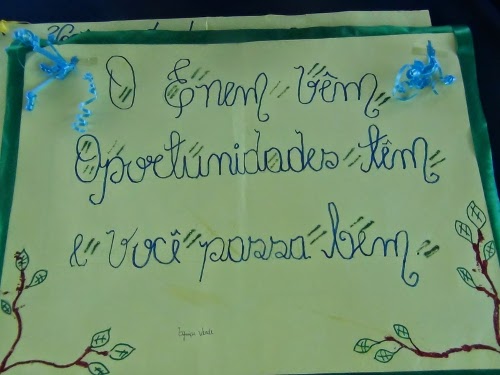 O Enem vêm
Oportunidades têm
e você passa bem